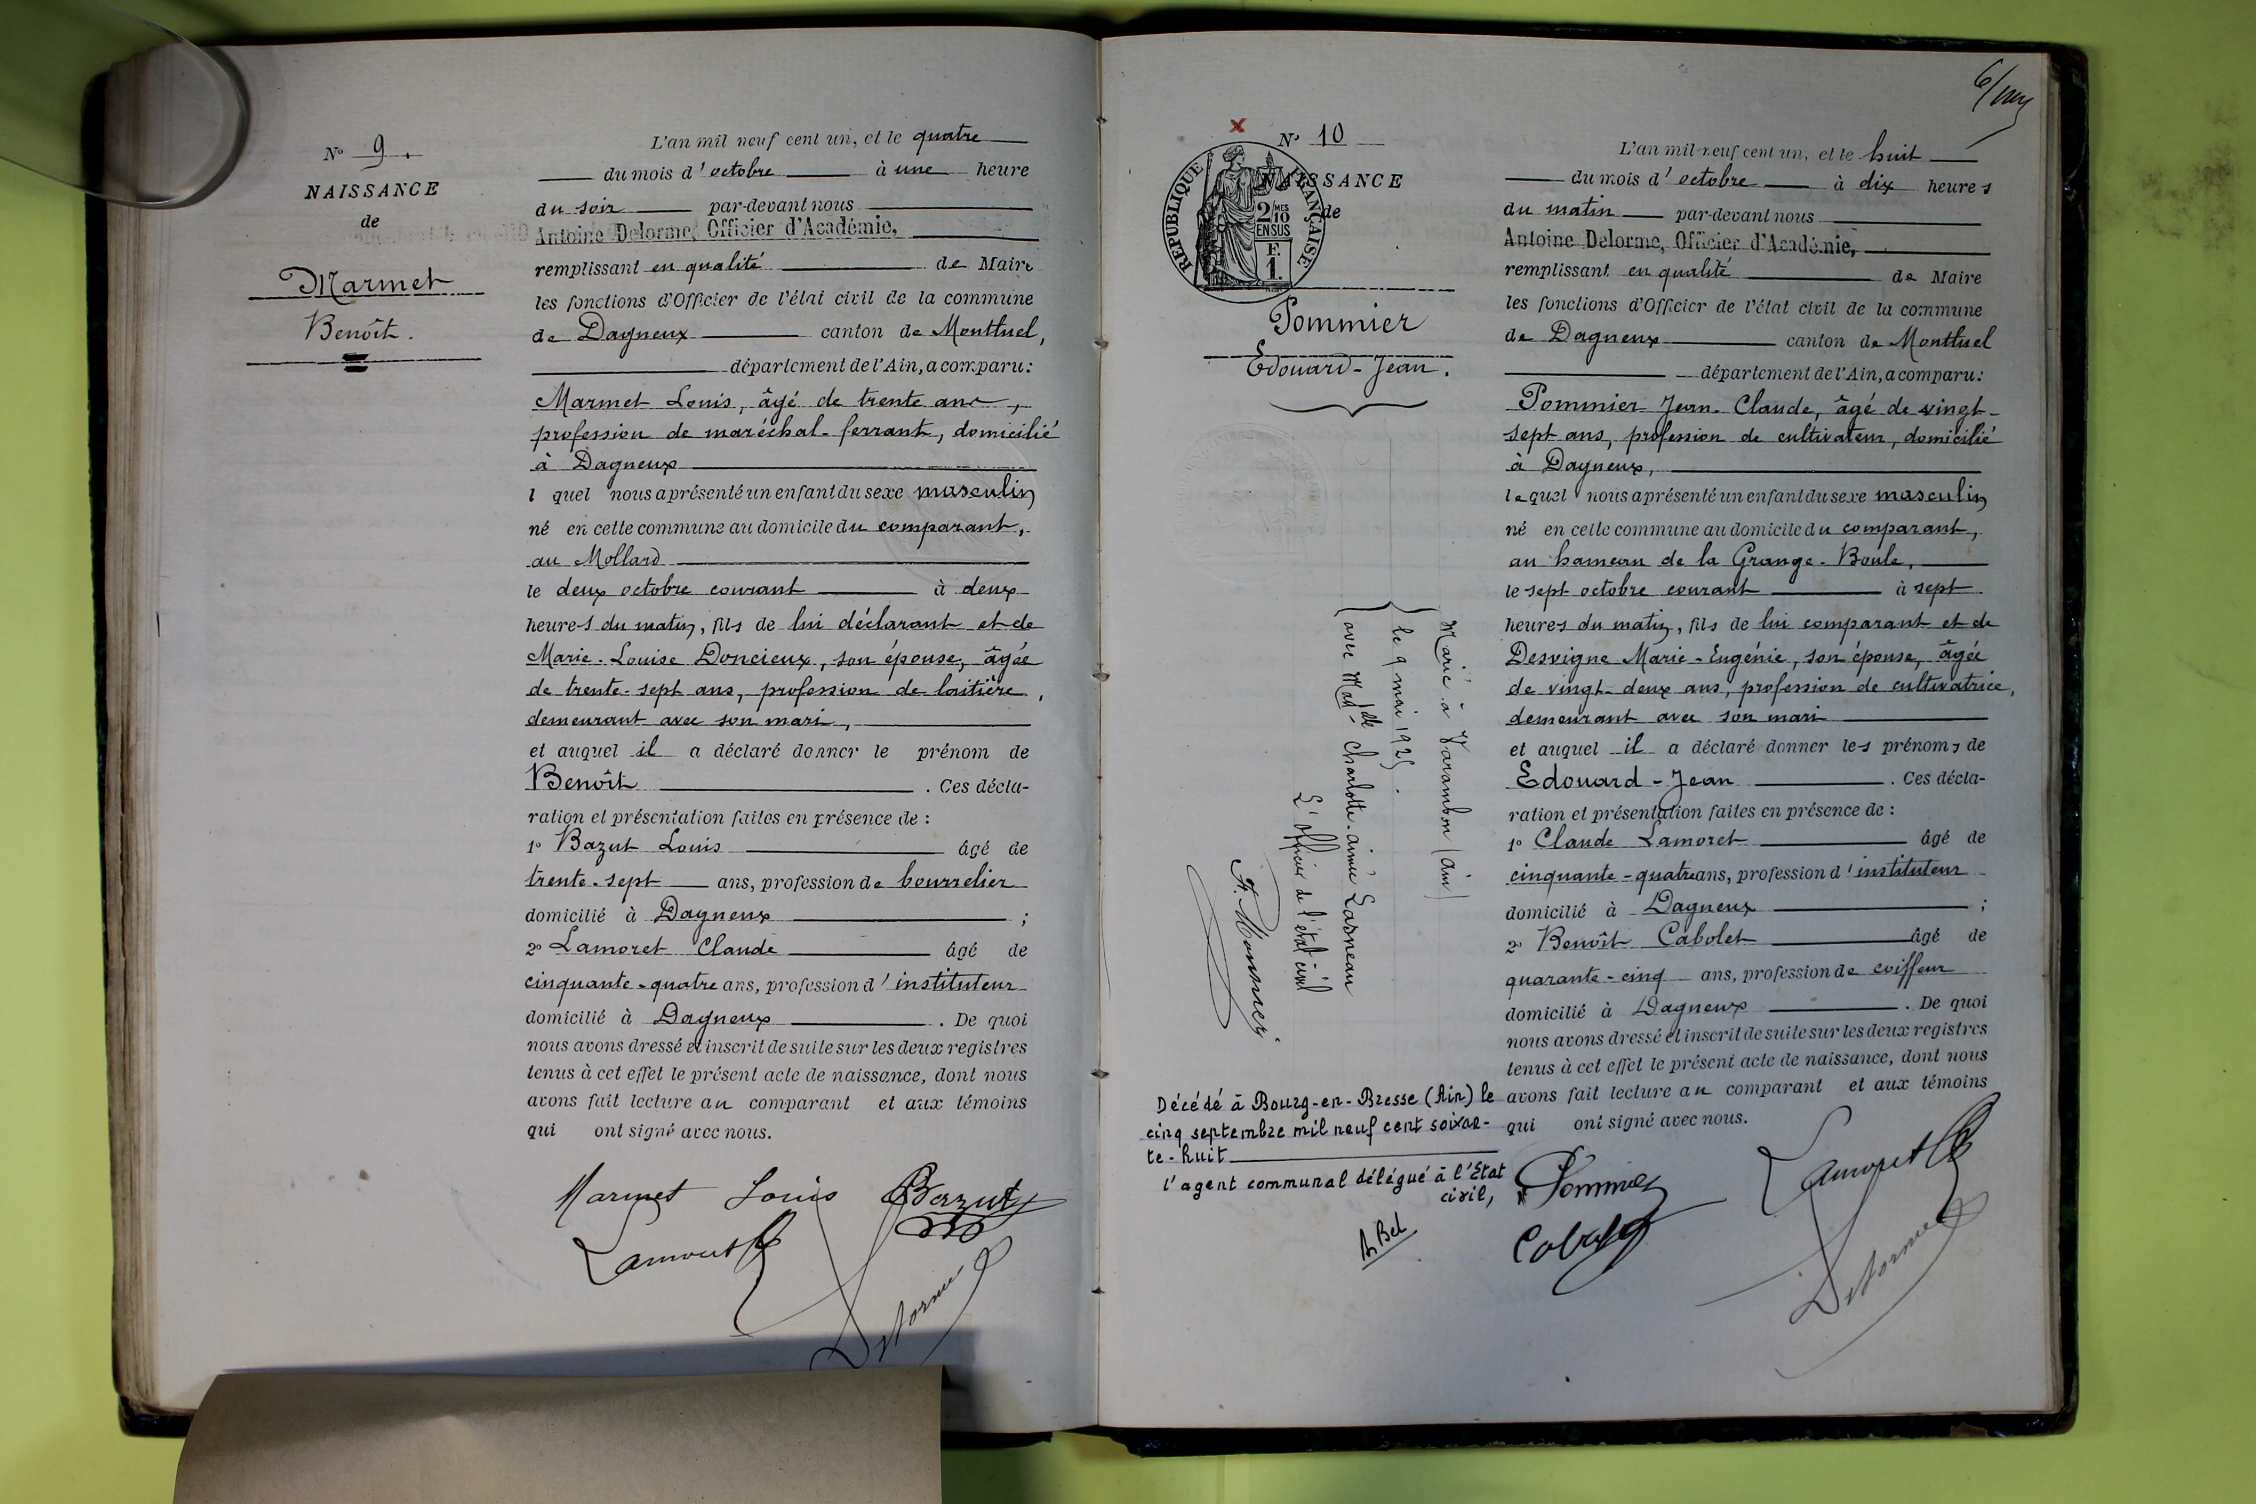 Nº 9.
NAISSANCE
de
Marmet
Benoît.
L'an mil neuf cent un, et le quatre
du mois d'octobre à une heure
du soir par-devant nous
Antoine Delorme, Officier d'Académie,
remplissant en qualité de Maire
les fonctions d'Officier de l'état civil de la commune
de Dagneux canton de Montluel,
département de l'Ain, a comparu:
Marmet Louis, âgé de trente ans,
profession de maréchal-ferrant, domicilié
à Dagneux
l quel nous a présenté un enfant du sexe masculin
né en cette commune au domicile du comparant,
au Mollard
le deux octobre courant à deux
heures du matin, fils de lui déclarant et de
Marie-Louise Doncieux, son épouse, âgée
de trente-sept ans, profession de laitière,
demeurant avec son mari,
et auquel il a déclaré donner le prénom de
Benoît. Ces décla-
ration et présentation faites en présence de :
1º Bazut Louis âgé de
trente-sept ans, profession de bourrelier
domicilié à Dagneux ;
2º Lamoret Claude âgé de
cinquante-quatre ans, profession d'instituteur
domicilié à Dagneux. De quoi
nous avons dressé et inscrit de suite sur les deux registres
tenus à cet effet le présent acte de naissance, dont nous
avons fait lecture au comparant et aux témoins
qui ont signé avec nous.
Marmet Louis Bazut
Lamoret
Delorme
6/
x Nº 10
NAISSANCE
de
RÉPUBLIQUE FRANÇAISE
2/10 MES
EN SUS
F.
1.
Pommier
Edouard-Jean.
L'an mil neuf cent un, et le huit
du mois d'octobre à dix heures
du matin par-devant nous
Antoine Delorme, Officier d'Académie,
remplissant en qualité de Maire
les fonctions d'Officier de l'état civil de la commune
de Dagneux canton de Montluel
département de l'Ain, a comparu:
Pommier Jean-Claude, âgé de vingt-
sept ans, profession de cultivateur, domicilié
à Dagneux,
lequel nous a présenté un enfant du sexe masculin
né en cette commune au domicile du comparant,
au hameau de la Grange-Boule,
le sept octobre courant à sept
heures du matin, fils de lui comparant et de
Desvigne Marie-Eugénie, son épouse, âgée
de vingt-deux ans, profession de cultivatrice,
demeurant avec son mari
et auquel il a déclaré donner les prénoms de
Edouard-Jean. Ces décla-
ration et présentation faites en présence de :
1º Claude Lamoret âgé de
cinquante-quatre ans, profession d'instituteur
domicilié à Dagneux ;
2º Benoît Cabolet âgé de
quarante-cinq ans, profession de coiffeur
domicilié à Dagneux. De quoi
nous avons dressé et inscrit de suite sur les deux registres
tenus à cet effet le présent acte de naissance, dont nous
avons fait lecture au comparant et aux témoins
qui ont signé avec nous.
Pommier Lamoret
Cabolet
Delorme
Marié à Varambon (Ain)
le 9 mai 1925.
avec Madlle Charlotte-aimée Lasneau
L'officier de l'état-civil
Décédé à Bourg-en-Bresse (Ain) le
cinq septembre mil neuf cent soixan-
te-huit
l'agent communal délégué à l'Etat
civil,
Bel